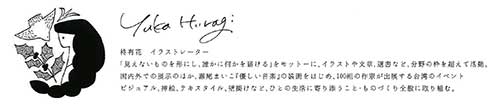 Yuka Hiiragi
柊有花　イラストレーター
「見えないものを形にし、誰かに何かを届ける」をモットーに、イラストや文章、選書など、分野の枠を超えて活動。
国内外での展示のほか、瀬尾まいこ『優しい音楽』の装画をはじめ、100組の作家が出展する台湾のイベント
ビジュアル、挿絵、テキスタイル、壁掛けなど、ひとの生活に寄り添うこと・ものづくり全般に取り組む。